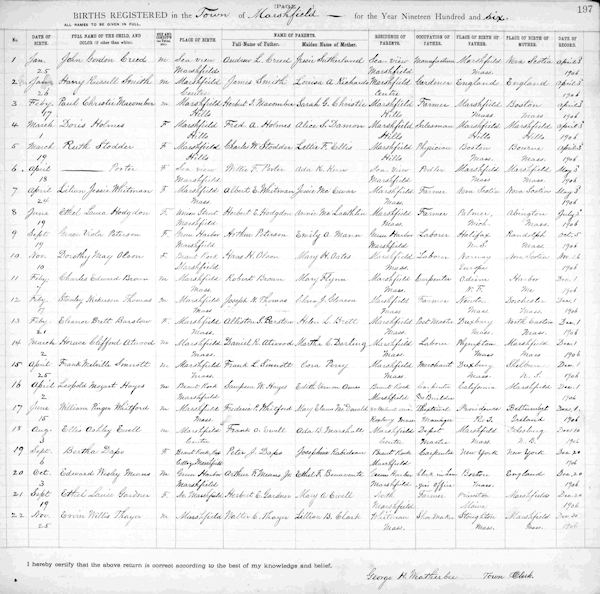 [PAGE] 197
BIRTHS REGISTERED in the Town of Marshfield for the Year Nineteen Hundred and six.
ALL NAMES TO BE GIVEN IN FULL.
No. DATE OF BIRTH. FULL NAME OF THE CHILD, AND COLOR if other than white. PLACE OF BIRTH. NAME OF PARENTS. Full-Name of Father. Maiden Name of Mother. RESIDENCE OF PARENTS. OCCUPATION OF FATHER. PLACE OF BIRTH OF FATHER. PLACE OF BIRTH OF MOTHER. DATE OF RECORD.
1 Jan. John Gordon Creed m Sea view Andrew L. Creed Jessie Sutherland Sea view Marshfield Nova Scotia April 3
25 Marshfield Marshfield Mass. 1906
2 Jan Harry Russell Smith m Marshfield James Smith Louisa A Richards Marshfield Gardener England England April 3
26 Centre Centre 1906
3 Feby Paul Christie Macomber m Marshfield Herbert I Macomber Sarah G. Christie Marshfield Farmer Marshfield Boston April 3
17 Hills Hills Mass Mass 1906
4 March Doris Holmes F Marshfield Fred A Holmes Alice L Damon Marshfield Salesman Marshfield Marshfield April 3
Hills Hills Hills Hills 1906
5 March Ruth Stodder F Marshfield Charles W. Stodder Lettie F. Ellis Marshfield Physician Boston Bourne April 3
19 Hills Hills Mass Mass. 1906
6 April Porter F Sea view Willie F. Porter Ada K. Sea View Marshfield Marshfield May 3
18 Marshfield Marshfield Mass 1906
7 April Lillian Josie Whitman F Marshfield Albert E Whitman Josie Marshfield Farmer Nova Scotia Nova Scotia May 3
24 Mass Mass. 1906
8 June Ethel Laura Hodgdon F Union Street Herbert E Hodgdon Annie Marshfield Farmer Palmer, Abington July 3
9 Marshfield Mass. Mich. Mass 1906
9 Sept. Viola Peterson F Green Harbor Arthur Peterson Emily A Mann Green Harbor Laborer Halifax Randolph
19 Marshfield Marshfield N.S. Mass 1906
10 Nov. Dorothy May Olson F Brant Rock Hans K. Olson Mary H. Oates Marshfield Laborer Norway Nova Scotia Nov. 16
10 Marshfield Mass. Europe 1906
11 Feby Charles Edward Brown m Marshfield Robert Brown Mary Flynn Marshfield Carpenter Dec. 1
7 Mass Mass. Me 1906
12 Feby Stanley Thomas m Marshfield Joseph W. Thomas Marshfield Farmer Dorchester Dec. 1
7 Mass. Mass. Mass. Mass 1906
13 Feby Eleanor Brett Barstow F Marshfield Barstow Helen L. Brett Marshfield Post Master Duxbury North Easton Dec. 1
21 Mass Mass. Mass. Mass. 1906
14 March Horace Clifford Atwood m Marshfield Daniel R. Atwood Martha E Darling Marshfield Laborer Plympton Marshfield Dec 1
2 Mass. Mass. Mass Mass 1906
15 April Frank Melville Sinnott m Marshfield Frank L. Sinnott Cora Perry Marshfield Merchant Duxbury Dec. 1
25 Mass Mass. Mass. N.S. 1906
16 April Leopold Hayes m Brant Rock Simpson W. Hayes Edith Brant Rock California Marshfield Dec. 1
2 Marshfield Marshfield Builder 1906
17 June William Roger Whitford m Marshfield Frederic P. Whitford Mary Theatrical Providence Ireland Dec. 1
15 Mass Manager R.I. 1906
18 Aug. Ellis Ashby Ewell m Marshfield Frank O. Ewell Ada B. Marshall Marshfield Depot Marshfield Dec 18
3 Centre Centre Master Mass. N.S. 1906
19 Sept. Bertha Daps F Brant Rock Peter J. Daps Josephine Brant Rock Carpenter New York New York Dec. 20
Marshfield Marshfield 1906
20 Oct. Edward Means m Green Harbor Arthur F. Means Jr. Ethel F. Green Harbor Boston England Dec. 20
3 Marshfield Marshfield office Mass 1906
21 Sept Ethel Louise Gardner F No. Marshfield Herbert E. Gardner Mary E Ewell North Farmer Marshfield Dec 20
19 Marshfield Maine Mass. 1906
22 Nov. Ervin Willis Thayer m Marshfield Walter E. Thayer Lillian B. Clark Whitman Shoe Maker Stoughton Marshfield Dec 30
25 Mass. Mass. Mass. 1906
I hereby certify that the above return is correct according to the best of my knowledge and belief.
George H. Weatherbee Town Clerk.